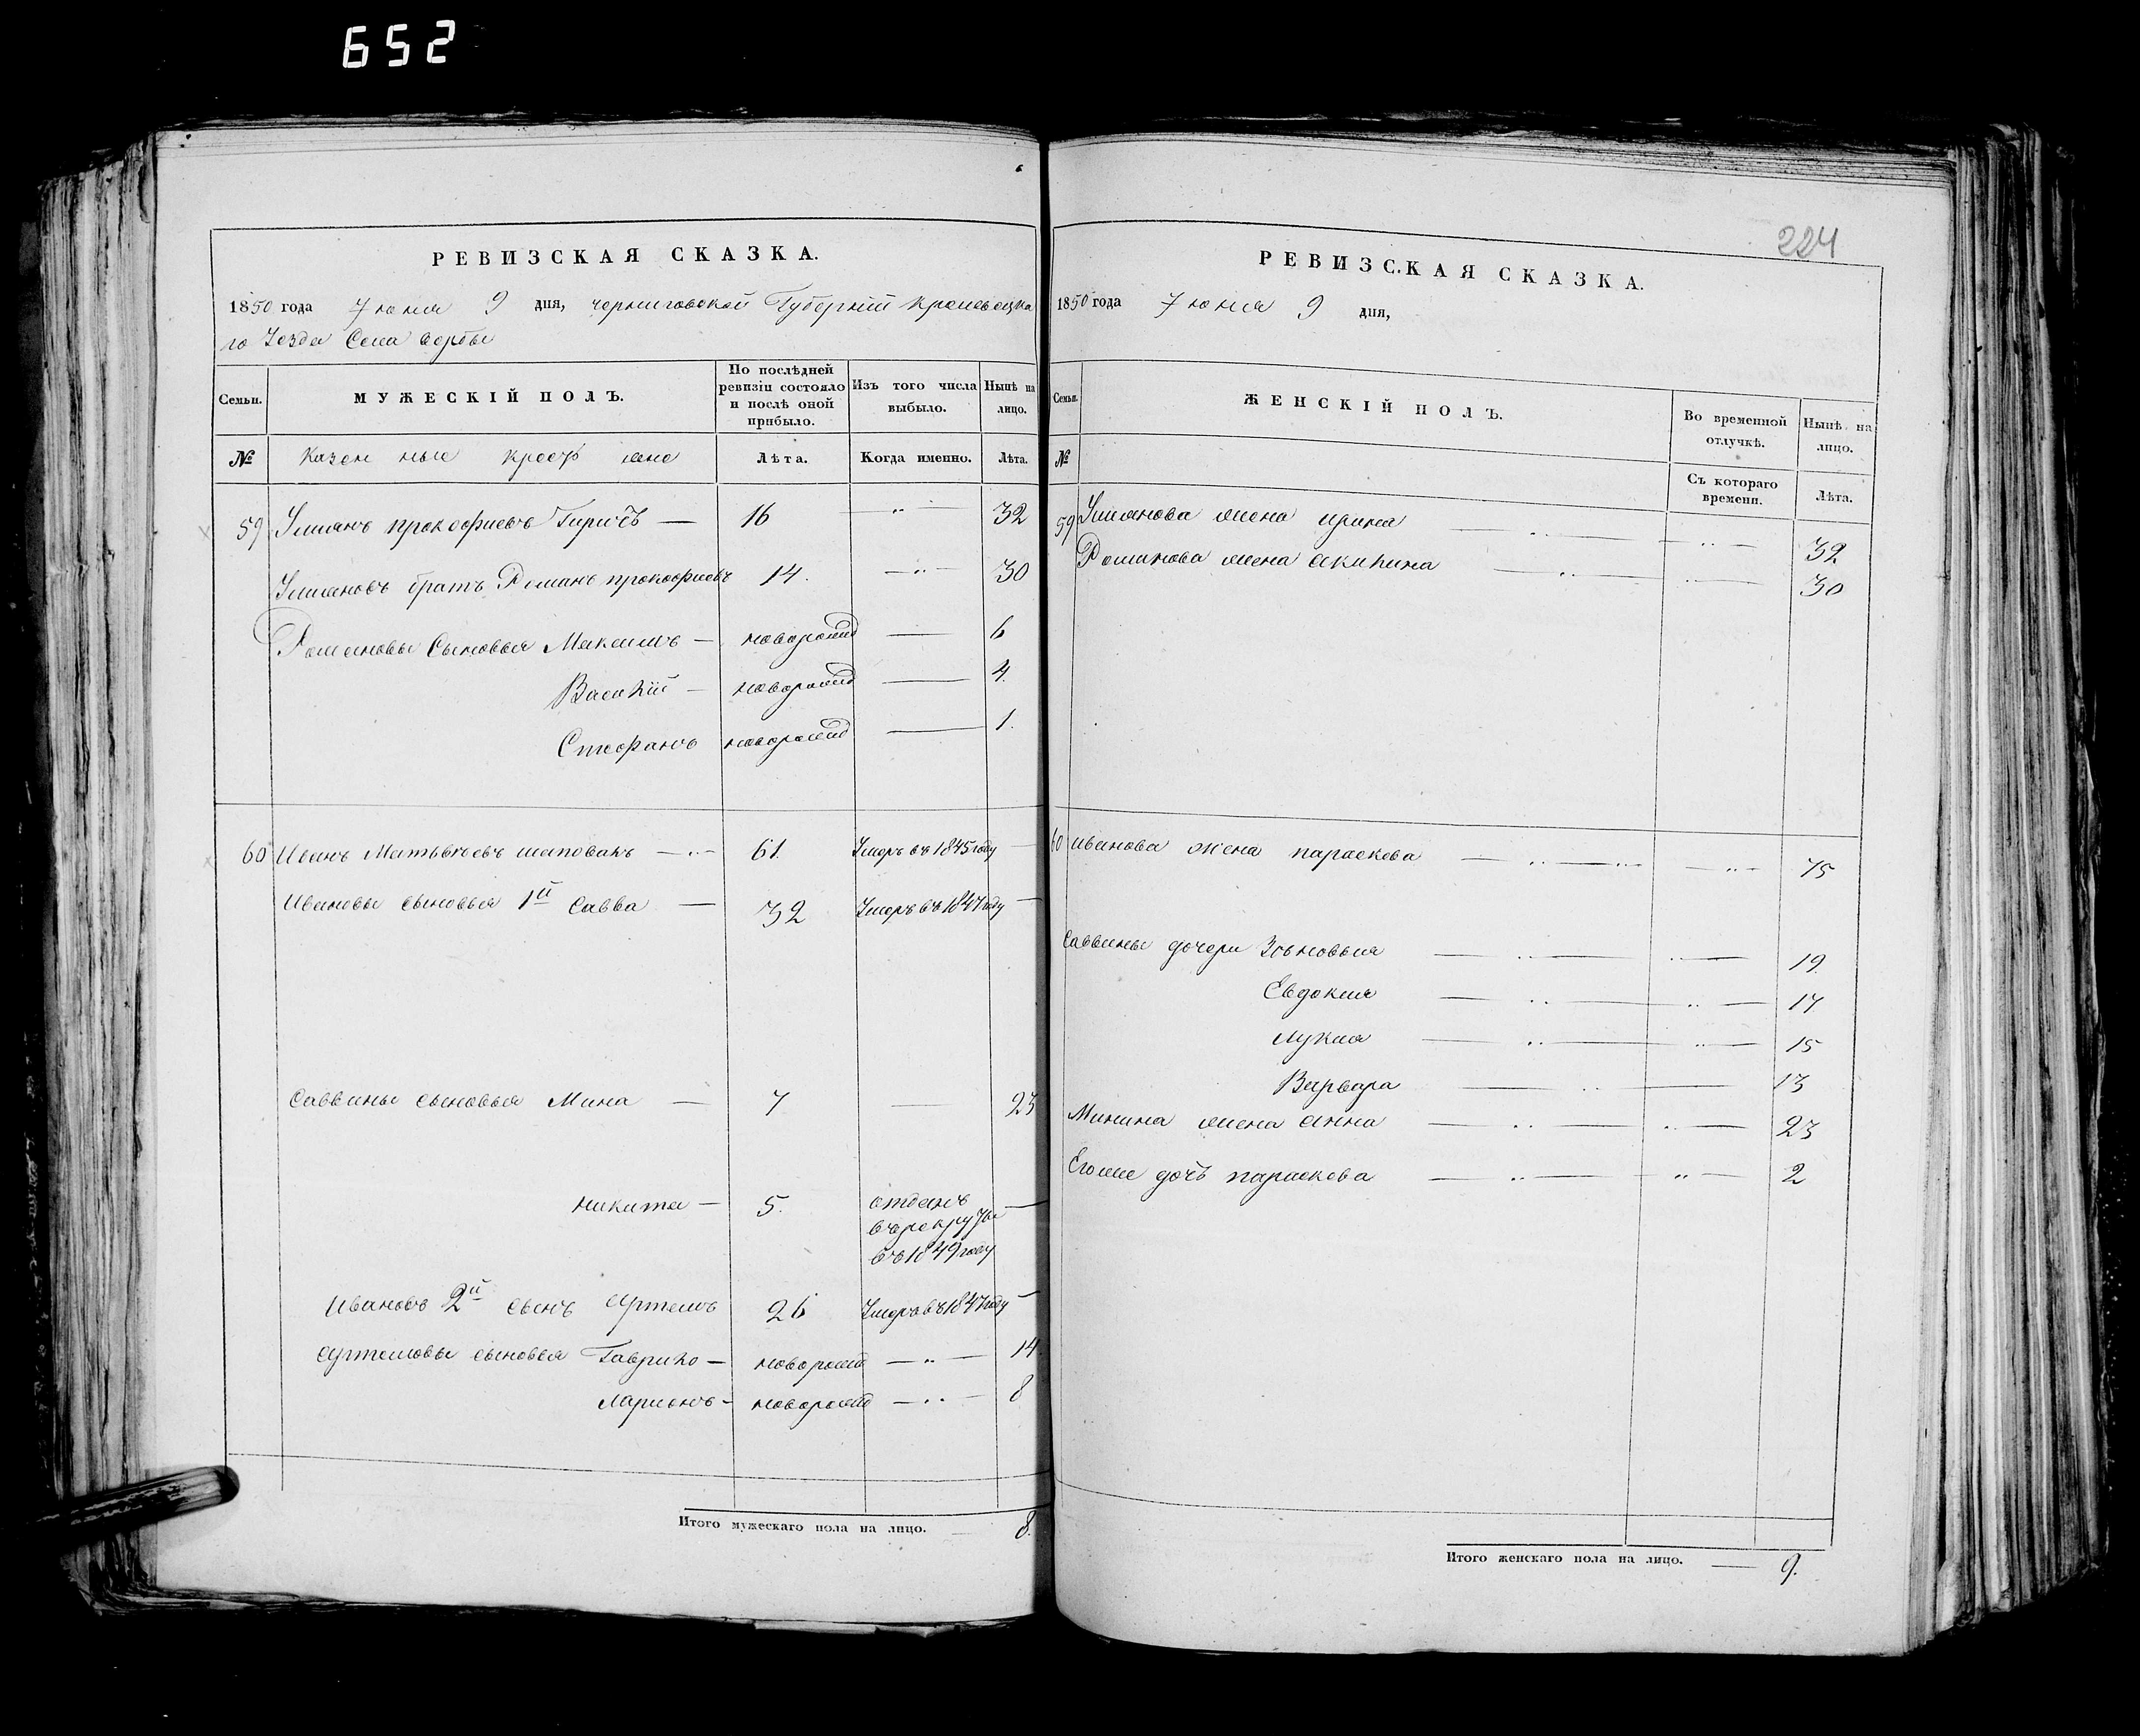 652
РЕВИЗСКАЯ СКАЗКА.
1850 года Июня 9 дня, черниговской Губерній кролевецка
го Уезда Села вербы
Семьи.
МУЖЕСКІЙ ПОЛЪ.
По послѣдней ревизіи состояло и послѣ оной прибыло.
Изъ того числа выбыло.
Нынѣ на лицо.
№
Казен ные крест яне
Лѣта.
Когда именно.
Лѣта.
59 прокофиевъ — 16 — „ — 32
братъ Романъ прокофиевъ 14. — „ — 30
Романовы Сыновья Максимъ — новорожд — 6
Василій — новорожд — 4.
Стефанъ новорожд — 1.
60 Иванъ Матвѣевъ шаповалъ — „ — 61. Умеръ въ 1845 году —
Ивановы сыновья 1й Савва — 32 Умеръ въ 1847 году —
Саввины сыновья Мина — 7 — 23
никита — 5. отданъ —
въ рекруты
въ 1849 году
Ивановъ 2й сынъ Артемъ 26 Умеръ въ 1847 году —
Артемовы сыновья Гаврило — новорожд — „ — 14
Ларионъ — новорожд — „ — 8
Итого мужескаго пола на лицо. — 8.
224
РЕВИЗСКАЯ СКАЗКА.
1850 года Июня 9 дня,
Семьи.
ЖЕНСКІЙ ПОЛЪ.
Во временной отлучкѣ.
Нынѣ на лицо.
№
Съ котораго времени.
Лѣта.
59 жена ирина — „ — „ — 32
Романова жена акилина — „ — „ — 30
60 иванова жена параскева — „ — „ — „ — 75
Саввины дочери Зѣновъия — „ — „ — 19
Евдокия — „ — „ — 17
Лукия — „ — „ — 15
Варвара — „ — 13
Минина жена анна — „ — „ — 23
Егоже дочъ параскева — „ — „ — 2
Итого женскаго пола на лицо. — 9.